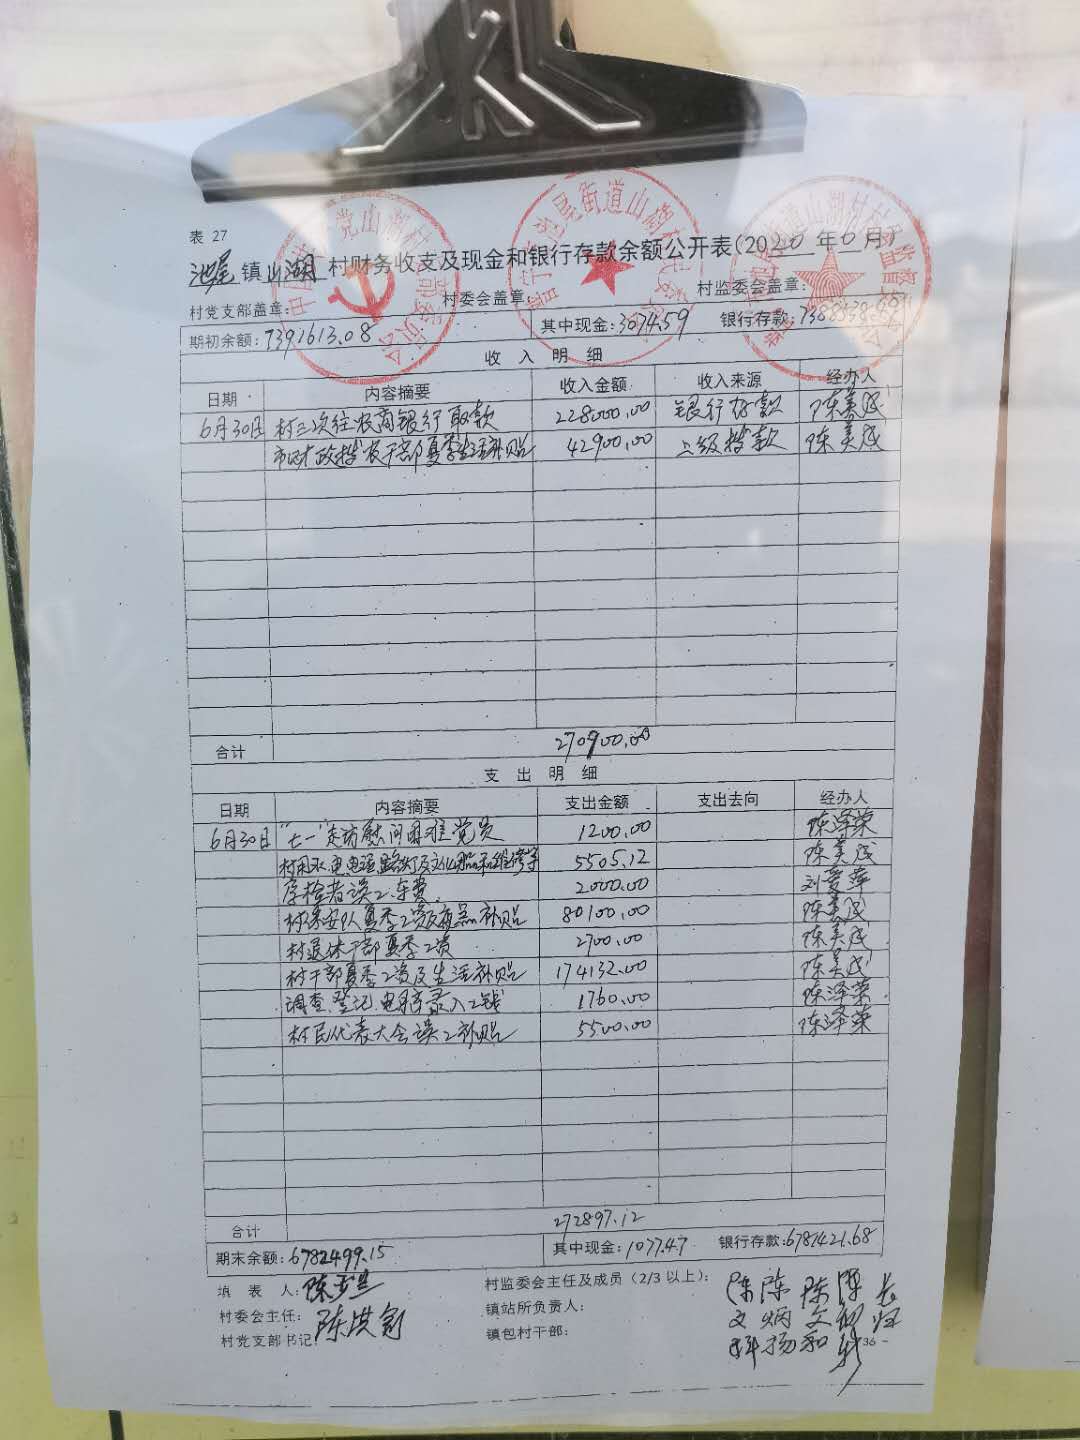 表 27
池尾镇山湖村财务收支及现金和银行存款余额公开表(2020年 月)
村党支部盖章: 村委会盖章: 村监委会盖章:
期初余额:7391613.08 其中现金:3074.59 银行存款:7388538.49
收入明细
日期 内容摘要 收入金额 收入来源 经办人
6月30日 村三次往农商银行取款 228000.00 银行存款 陈美成
市财政拨农干部夏季生活补贴 42900.00 上级拨款 陈美成
合计 270900.00
支出明细
日期 内容摘要 支出金额 支出去向 经办人
6月30日 “七一”走访慰问困难党员 1200.00 陈泽荣
村用水.电.电话.路灯及文化 5505.12 陈美成
孕检者误工.车费 2000.00 刘爱萍
村保安队夏季工资及夜 补贴 80100.00 陈美成
村退休干部夏季工资 2700.00 陈美成
村干部夏季工资及生活补贴 174132.00 陈美成
调查.登记.电脑录入工钱 1760.00 陈泽荣
村民代表大会误工补贴 5500.00 陈泽荣
合计 272897.12
期末余额:6782499.15 其中现金:1077.47 银行存款:6781421.68
填 表 人:
村监委会主任及成员(2/3以上):
村委会主任: 陈洪
镇站所负责人:
村党支部书记:
镇包村干部:
36 -